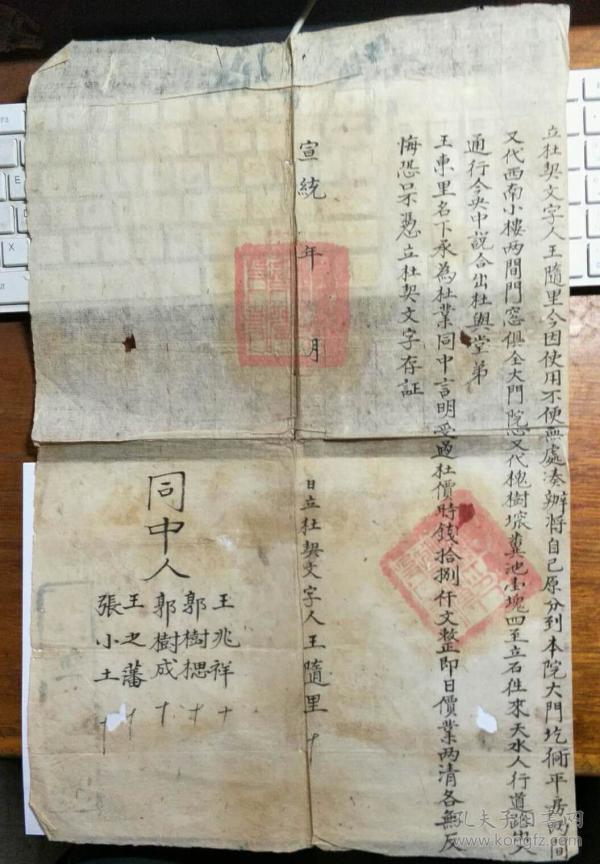 立杜契文字人王隨里今因使用不便無處湊辦將自己原分到本院大門圪衕平房兩間
又代西南小樓两間門窓俱全大門院心又代槐樹塲糞池壹塊四至立石徃來天水人行道路出入
通行今央中說合出杜與堂弟
王東里名下永為杜業同中言明受過杜價時錢拾捌仟文整即日價業两清各無反
悔恐口不憑立杜契文字存証
宣統 年 月
日立杜契文字人王隨里 十
同中人
王兆祥 十
郭樹楒 十
郭樹成 十
王之藩 十
張小土 十
孔夫子旧书网
www.kongfz.com